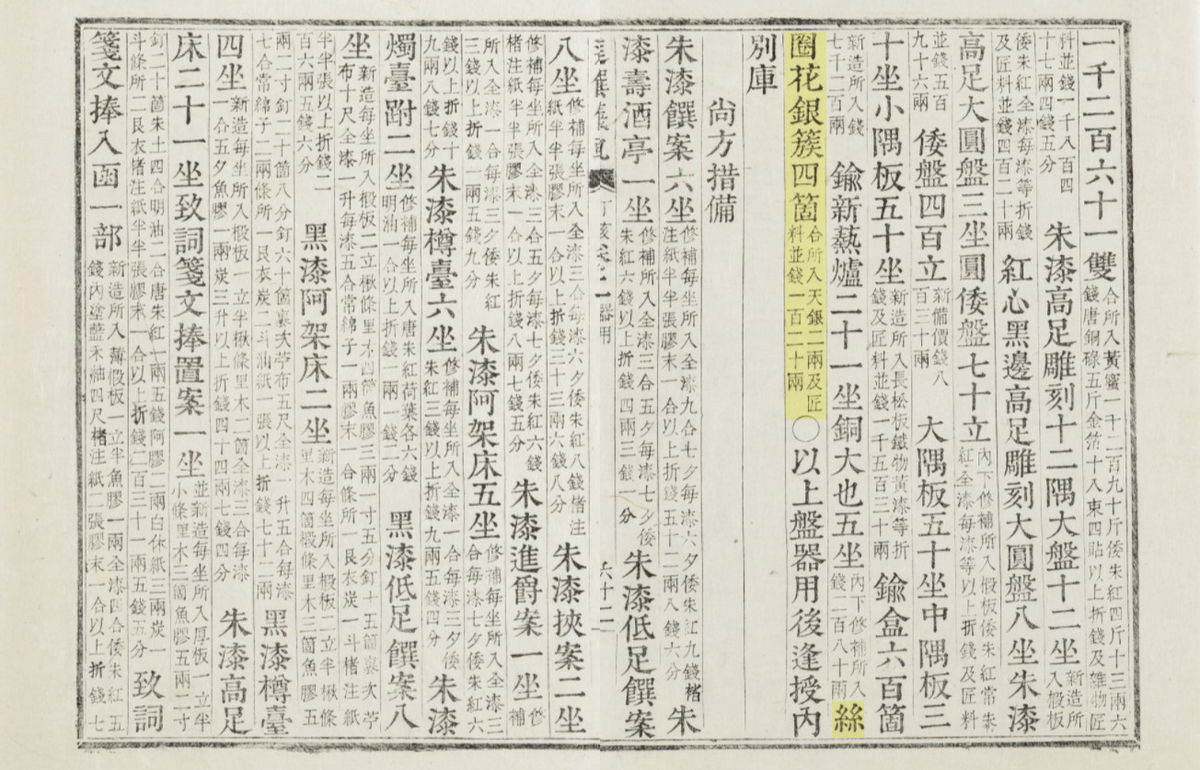 一千二百六十一雙 合所入黃蜜一千二百九十斤倭朱紅四斤十三兩六 錢唐銅碌五斤金箔十八束四貼以上折錢及雜物匠
料並錢一千八百四 十七兩四錢五分 朱漆高足雕刻十二隅大盤十二坐 新造所 入椴板
倭朱紅全漆每漆等折錢 及匠料並錢四百二十兩 紅心黑邊高足雕刻大圓盤八坐朱漆
高足大圓盤三坐圓倭盤七十立 內下修補所入椴板倭朱紅常朱 紅全漆每漆等以上折錢及匠料
並錢五百 九十六兩 倭盤四百立 新備價錢八 百三十兩 大隅板五十坐中隅板三
十坐小隅板五十坐 新造所入長松板鐵物黃漆等折 錢及匠料並錢一千五百三十兩 鍮盒六百箇
新造所入錢 七千二百兩 鍮新熱爐二十一坐銅大也五坐 內下修補所入 錢一百八十兩 絲
圈花銀簇四箇 合所入天銀二兩及匠 料並錢一百二十兩 ○以上盤器用後逢授內
別庫
尙方措備
朱漆饌案六坐 修補每坐所入全漆九合七夕每漆六夕倭朱紅九錢楮 注紙半半張膠末一合以上折錢五十二兩八錢六分 朱
漆壽酒亭一坐 修補所入全漆三合五夕每漆七夕倭 朱紅六錢以上折錢四兩三錢一分 朱漆低足饌案
六十二
八坐 修補每坐所入全漆三合每漆六夕倭朱紅八錢楮注 紙半半張膠末一合以上折錢三十三兩六錢八分 朱漆挾案二坐
修補每坐所入全漆三合五夕每漆七夕倭朱紅六錢 楮注紙半半張膠末一合以上折錢八兩七錢五分 朱漆進爵案一坐 修補
所入全漆一合每漆三夕倭朱紅 三錢以上折錢一兩五錢九分 朱漆阿架床五坐 修補每坐所入全漆三 合每漆七夕倭朱紅六
錢以上折錢十 九兩八錢七分 朱漆樽臺六坐 修補每坐所入全漆一合每漆三夕倭 朱紅三錢以上折錢九兩五錢四分 朱漆
燭臺跗二坐 修補每坐所入唐朱紅荷葉各六錢 明油一合以上折錢一兩一錢二分 黑漆低足饌案八
坐 新造每坐所入椴板二立楸條里木
布十尺全漆一升每漆五合常綿子一兩膠末一合條所一艮衣炭一斗楮注紙
半半張以上折錢二 百六兩五錢六分 黑漆阿架床二坐 新造每坐所入椴板二立半楸條 里木四箇椴條里木三箇魚膠五
兩二寸釘二十箇八分釘六十箇裹次苧布五尺全漆一升五合每漆 七合常綿子二兩條所一艮衣炭二斗油紙一張以上折錢七十二兩 黑漆樽臺
四坐 新造每坐所入椴板一立半楸條里木二箇全漆三合每漆 一合五夕魚膠一兩炭三升以上折錢四十四兩七錢四分 朱漆高足
床二十一坐致詞箋文捧置案一坐 並新造每坐所入厚板一立半 小條里木二箇魚膠五兩二寸
釘二十箇朱土四合明油二合唐朱紅一兩五錢阿膠二兩白休紙三兩炭一 斗條所二艮衣楮注紙半半張膠末一合以上折錢二百三十一兩五錢五分 致詞
箋文捧入函一部 新造所入薄椴板 立半魚膠一兩全漆四合倭朱紅五 錢內塗藍禾紬四尺楮注紙二張膠末一合以上折錢七